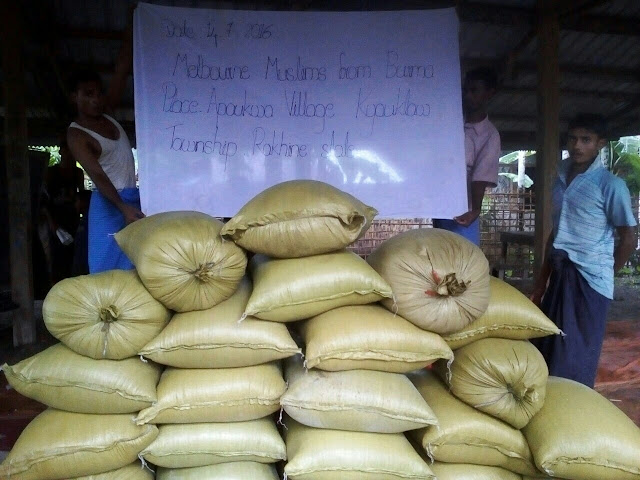 Date 14.7.2016
Melbourne Muslims from Burma
Place: Apaukwa Village Kyauktaw
Township Rakhine state